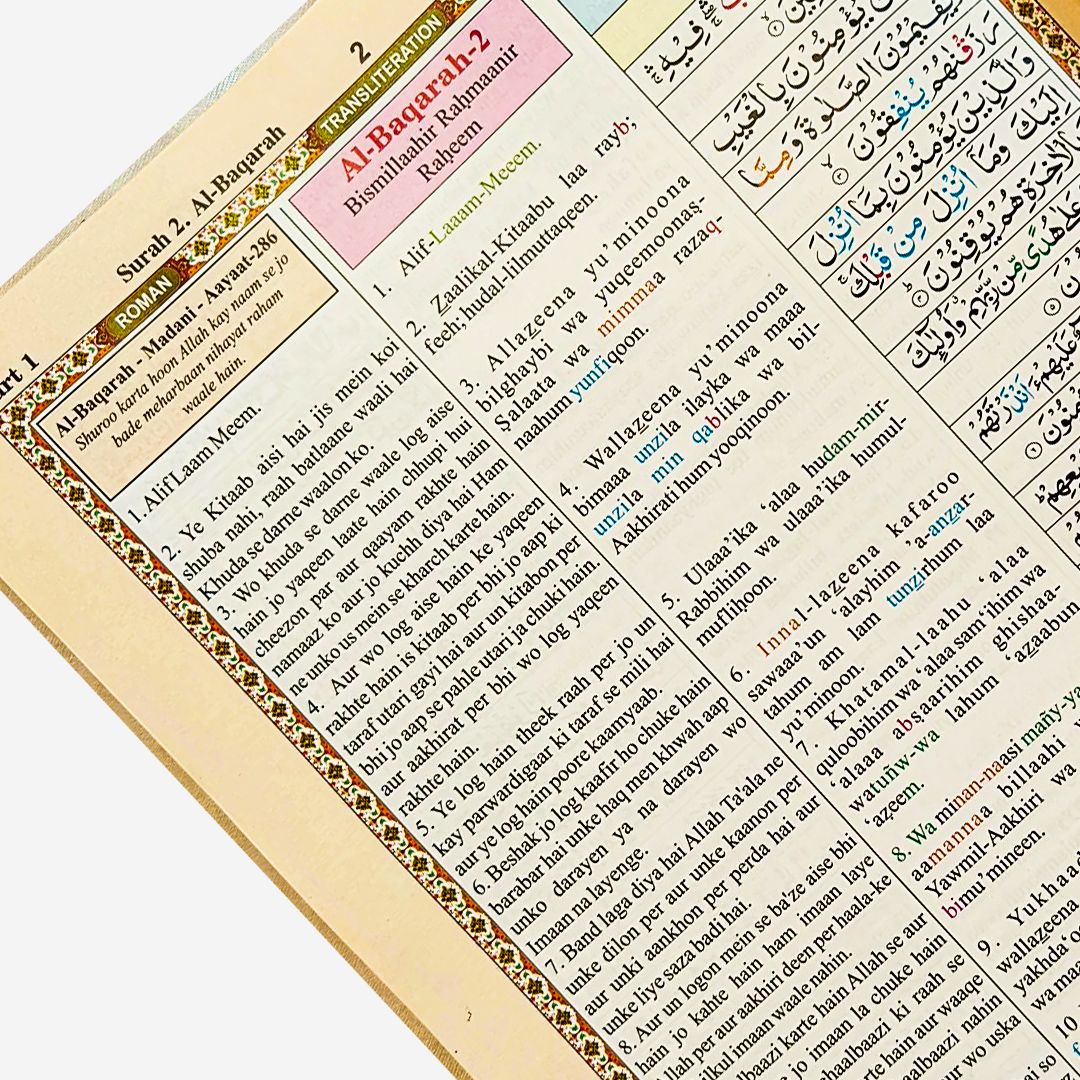 Part 1
Surah 2. Al-Baqarah
2
ROMAN
TRANSLITERATION
Al-Baqarah - Madani - Aayaat-286
Shuroo karta hoon Allah kay naam se jo
bade meharbaan nihayat raham
waale hain.
1. Alif Laam Meem.
2. Ye Kitaab aisi hai jis mein koi
shuba nahi, raah batlaane waali hai
Khuda se darne waalon ko.
3. Wo khuda se darne waale log aise
hain jo yaqeen laate hain chhupi hui
cheezon par aur qaayam rakhte hain
namaaz ko aur jo kuchh diya hai Ham
ne unko us mein se kharch karte hain.
4. Aur wo log aise hain ke yaqeen
rakhte hain is kitaab per bhi jo aap ki
taraf utari gayi hai aur un kitabon per
bhi jo aap se pahle utari ja chuki hain.
aur aakhirat per bhi wo log yaqeen
rakhte hain.
5. Ye log hain theek raah per jo un
kay parwardigaar ki taraf se mili hai
aur ye log hain poore kaamyaab.
6. Beshak jo log kaafir ho chuke hain
barabar hai unke haq men khwah aap
unko darayen ya na darayen wo
Imaan na layenge.
7. Band laga diya hai Allah Ta'ala ne
unke dilon per aur unke kaanon per
aur unki aankhon per perda hai aur
unke liye saza badi hai.
8. Aur un logon mein se ba'ze aise bhi
hain jo kahte hain ham imaan laye
Allah per aur aakhiri deen per haala-ke
imaan waale nahin.
karte hain Allah se aur
jo imaan la chuke hain
chaalbaazi ki raah se
karte hain aur waaqe
chaalbaazi nahin
aur wo uska
Al-Baqarah-2
Bismillaahir Raḥmaanir
Raḥeem
1. Alif-Laaam-Meem.
2. Zaalikal-Kitaabu laa rayb;
feeh; hudal-lilmuttaqeen.
3. Allazeena yu'minoona
bilghaybi wa yuqeemoonaṣ-
Ṣalaata wa mimmaa razaq-
naahum yunfiqoon.
4. Wallazeena yu'minoona
bimaaa unzila ilayka wa maaa
unzila min qablika wa bil-
Aakhirati hum yooqinoon.
5. Ulaaa'ika 'alaa hudam-mir-
Rabbihim wa ulaaa'ika humul-
mufliḥoon.
6. Innal-lazeena kafaroo
sawaaa'un 'alayhim 'a-anzar-
tahum am lam tunzirhum laa
yu'minoon.
7. Khatamal-laahu 'alaa
quloobihim wa 'alaa sam'ihim wa
'alaaa abṣaarihim ghishaa-
watunw-wa lahum 'azaabun
'azeem.
8. Wa minan-naasi many-ya
aamannaa billaahi wa
Yawmil-Aakhiri wa
bimu'mineen.
9. Yukhaad
wallazeena
yakhda'oo
wa maa
10
فِيْهِ
يُؤْمِنُوْنَ بِالْغَيْبِ
يُقِيْمُوْنَ الصَّلٰوةَ وَمِمَّا
رَزَقْنٰهُمْ يُنْفِقُوْنَ
وَالَّذِيْنَ يُؤْمِنُوْنَ بِمَآ اُنْزِلَ
اِلَيْكَ وَمَآ اُنْزِلَ مِنْ قَبْلِكَ
الْاٰخِرَةِ هُمْ يُوْقِنُوْنَ
عَلٰى هُدًى مِّنْ رَّبِّهِمْ وَاُولٰٓئِكَ